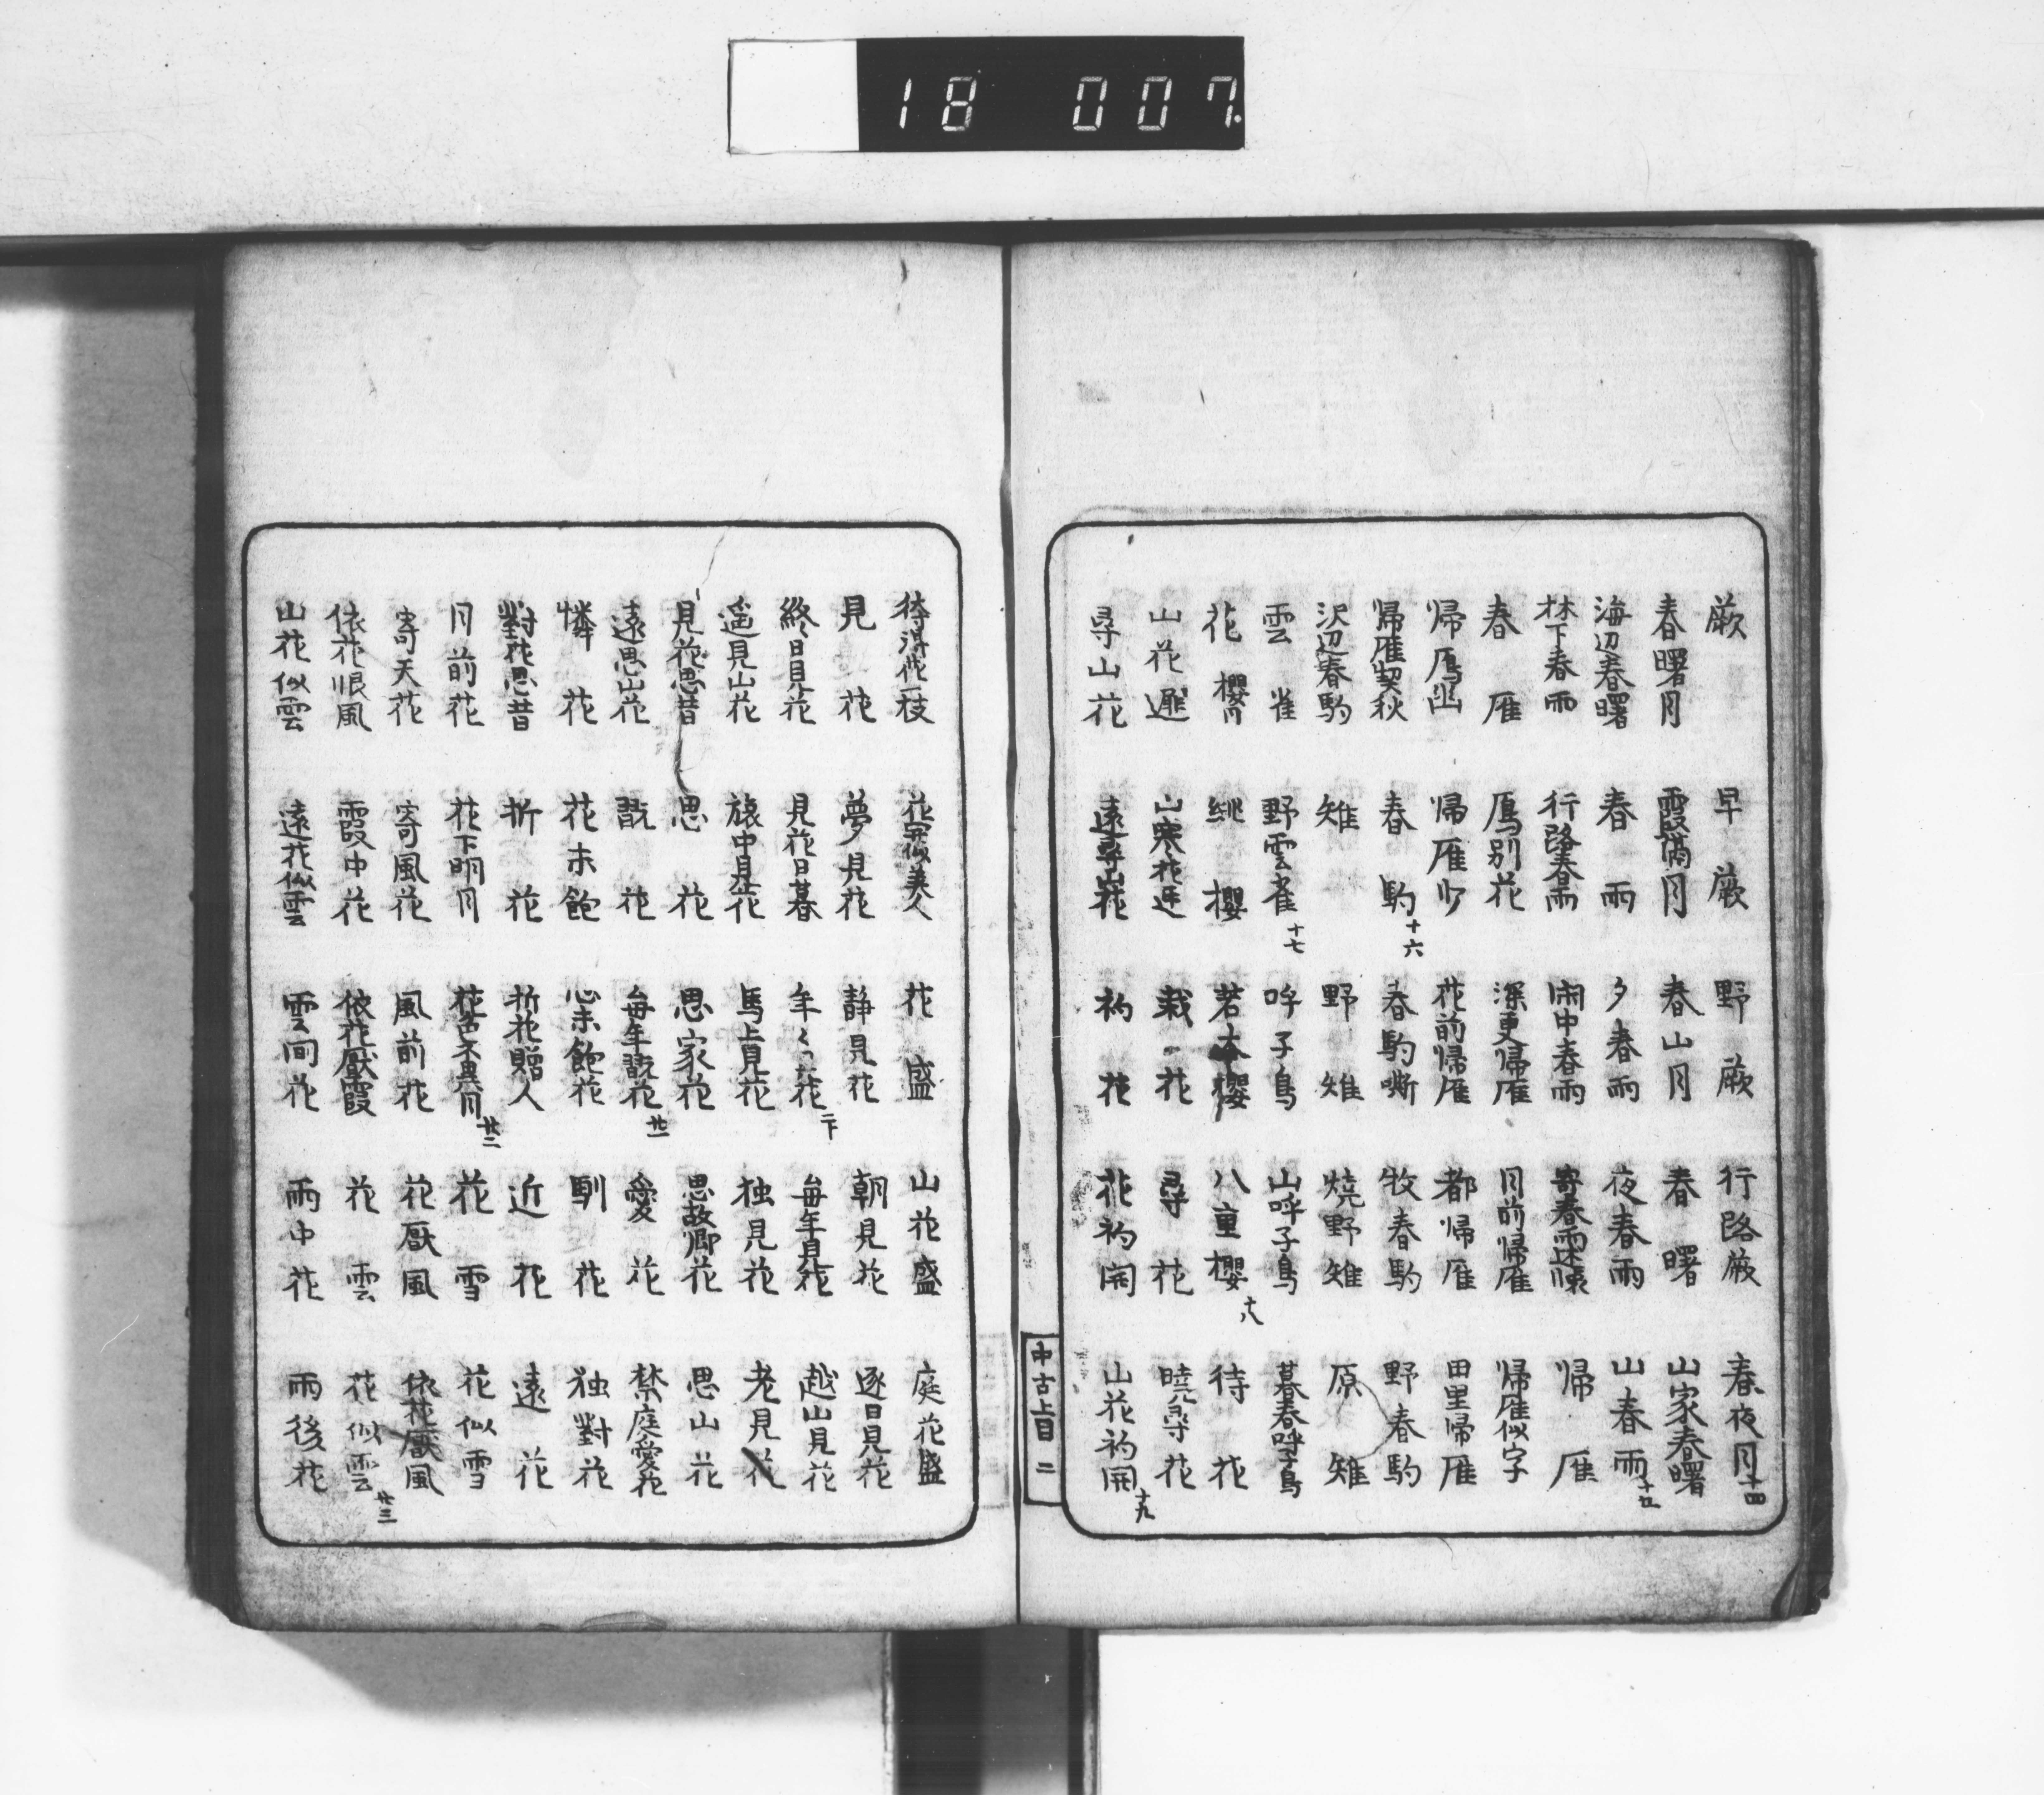 18 007.
蕨 早蕨 野蕨 行路蕨 春夜月 十四
春曙月 霞隔月 春山月 春曙 山家春曙
海辺春曙 春雨 夕春雨 夜春雨 山春雨 十五
林下春雨 行路春雨 閑中春雨 寄春雨述懐 帰雁
春雁 鳫別花 深更帰雁 月前帰雁 帰雁似字
帰鳫幽 帰雁少 花前帰雁 都帰雁 田里帰雁
帰雁契秋 春駒 十六 春駒嘶 牧春駒 野春駒
沢辺春駒 雉 野雉 焼野雉 原雉
雲雀 野雲雀 十七 呼子鳥 山呼子鳥 暮春呼子鳥
花櫻 桃櫻 若木櫻 八重櫻 十八 待花
山花遅 山寒花遅 栽花 尋花 曉尋花
尋山花 遠尋山花 初花 花初開 山花初開 十九
中古上目 二
待得花一枝 花宛似美人 花盛 山花盛 庭花盛
見花 夢見花 静見花 朝見花 逐日見花
終日見花 見花日暮 年〻花 二十 毎年見花 越山見花
遥見山花 旅中見花 馬上見花 独見花 老見花
見花思昔 思花 思家花 思故郷花 思山花
遠思山花 翫花 毎年翫花 廿一 愛花 禁庭愛花
憐花 花未飽 心未飽花 馴花 独對花
對花思昔 折花 折花贈人 近花 遠花
月前花 花下明月 花色不異月 廿二 花雪 花似雪
寄天花 寄風花 風前花 花厭風 依花厭風
依花恨風 霞中花 依花厭霞 花雲 花似雲 廿三
山花似雲 遠花似雲 雲間花 雨中花 雨後花